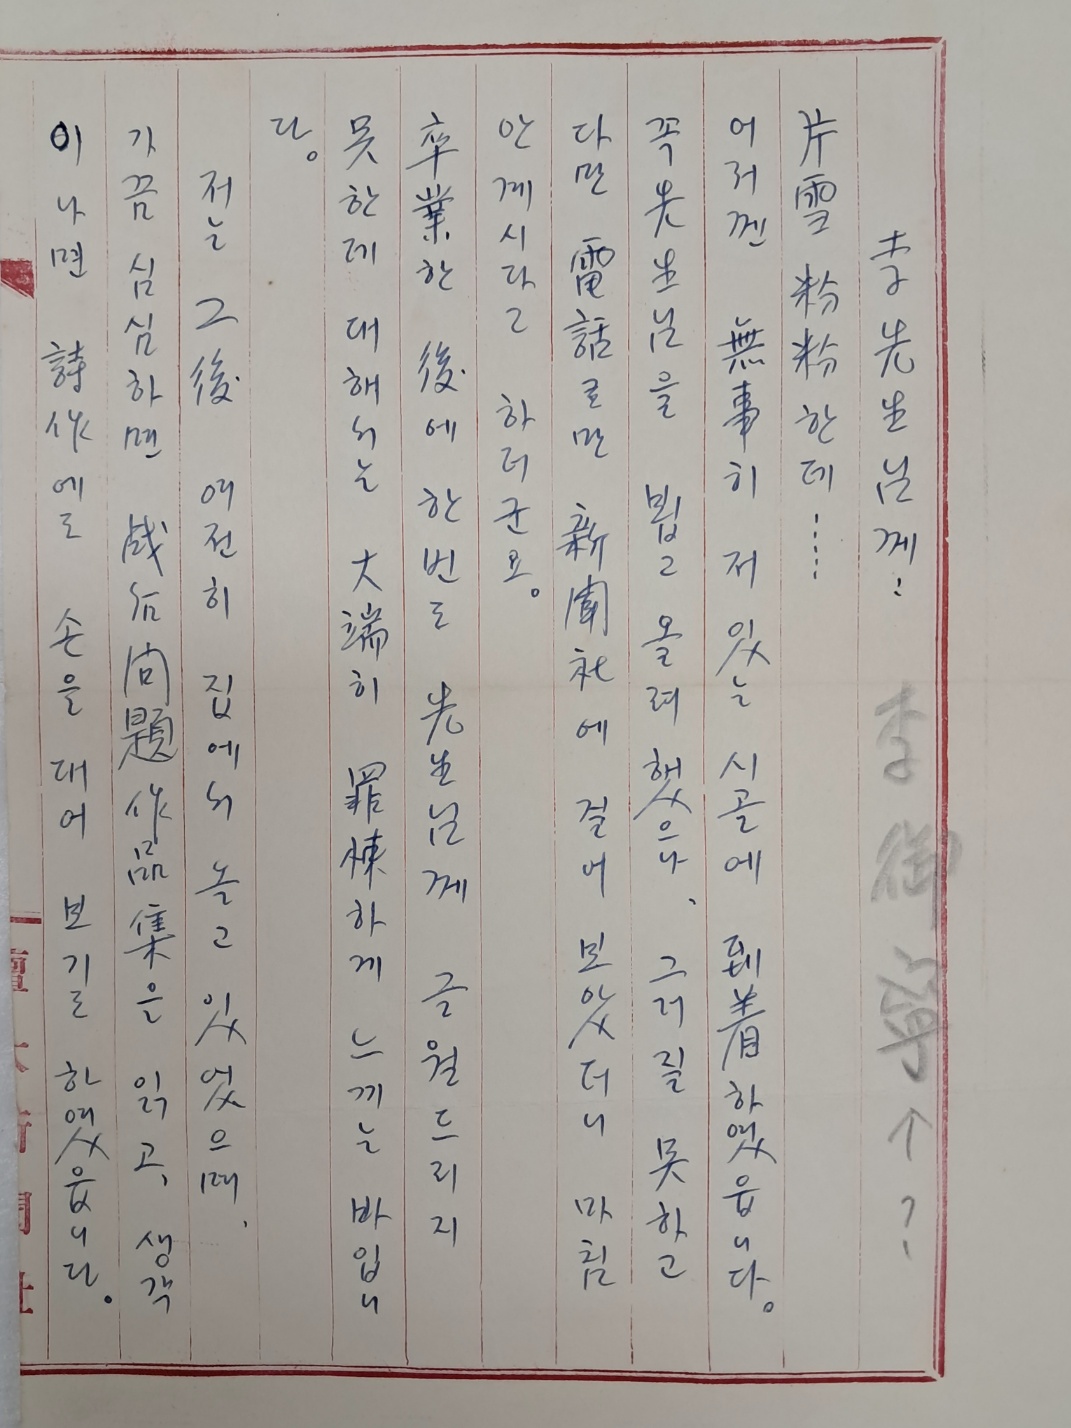 李先生님께:
片雪粉粉한데……
어저껜 無事히 저 있는 시골에 到着하였읍니다。
꼭 先生님을 뵙고 올려 했으나、그러질 못하고
다만 電話로만 新聞社에 걸어 보았더니 마침
안 계시다고 하더군요。
卒業한 後에 한번도 先生님께 글월 드리지
못한데 대해서는 大端히 罪悚하게 느끼는 바입니
다。
저는 그後 여전히 집에서 놀고 있었으며、
가끔 심심하면 戰后问題作品集을 읽고、생각
이 나면 詩作에도 손을 대어 보기도 하였읍니다。
李御寧↑?